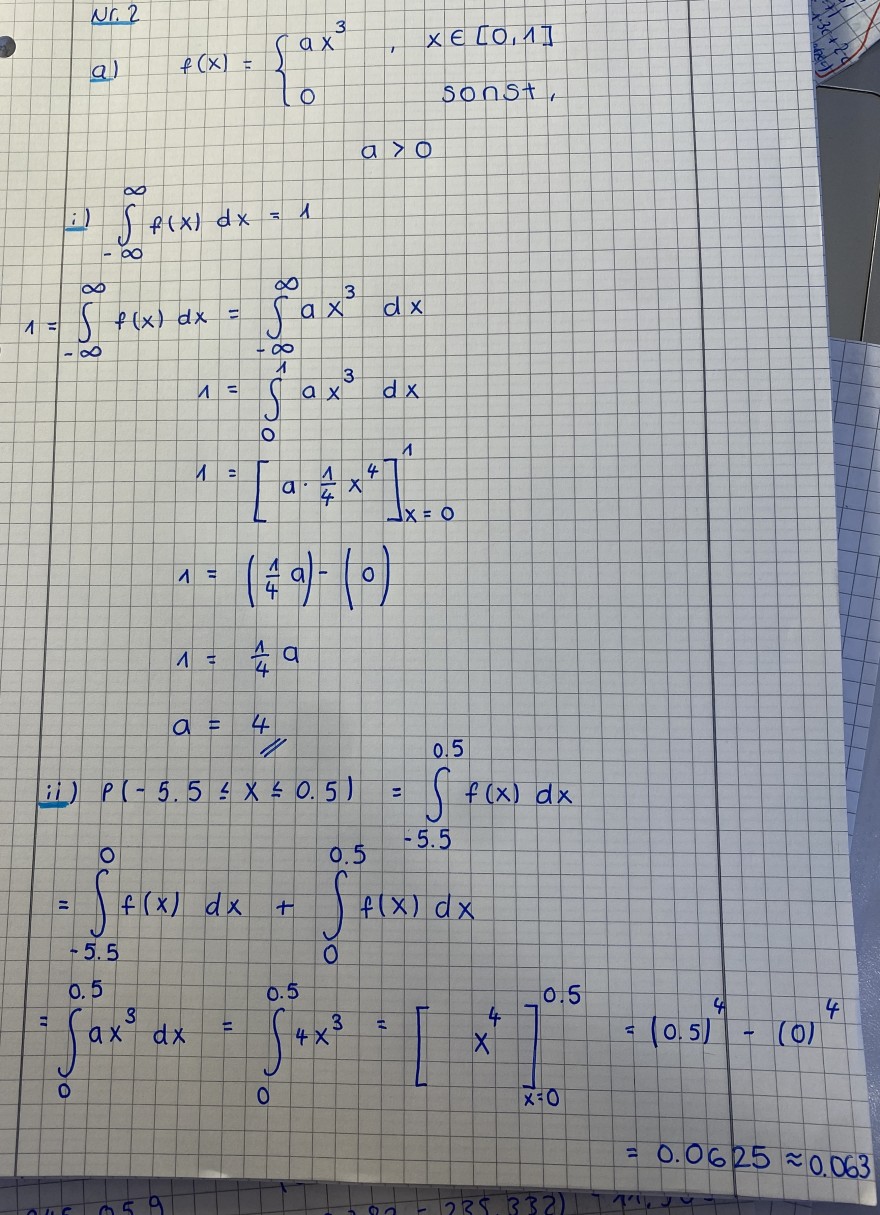 Nr. 2
a) f(x) = { ax³ , x ∈ [0,1]
0 sonst,
a > 0
i) ∫_{-∞}^{∞} f(x) dx = 1
1 = ∫_{-∞}^{∞} f(x) dx = ∫_{-∞}^{∞} ax³ dx
1 = ∫_{0}^{1} ax³ dx
1 = [ a · 1/4 x⁴ ]_{x=0}^{1}
1 = (1/4 a) - (0)
1 = 1/4 a
a = 4
ii) P(-5.5 ≤ X ≤ 0.5) = ∫_{-5.5}^{0.5} f(x) dx
= ∫_{-5.5}^{0} f(x) dx + ∫_{0}^{0.5} f(x) dx
= ∫_{0}^{0.5} ax³ dx = ∫_{0}^{0.5} 4x³ = [ x⁴ ]_{x=0}^{0.5} = (0.5)⁴ - (0)⁴
= 0.0625 ≈ 0.063